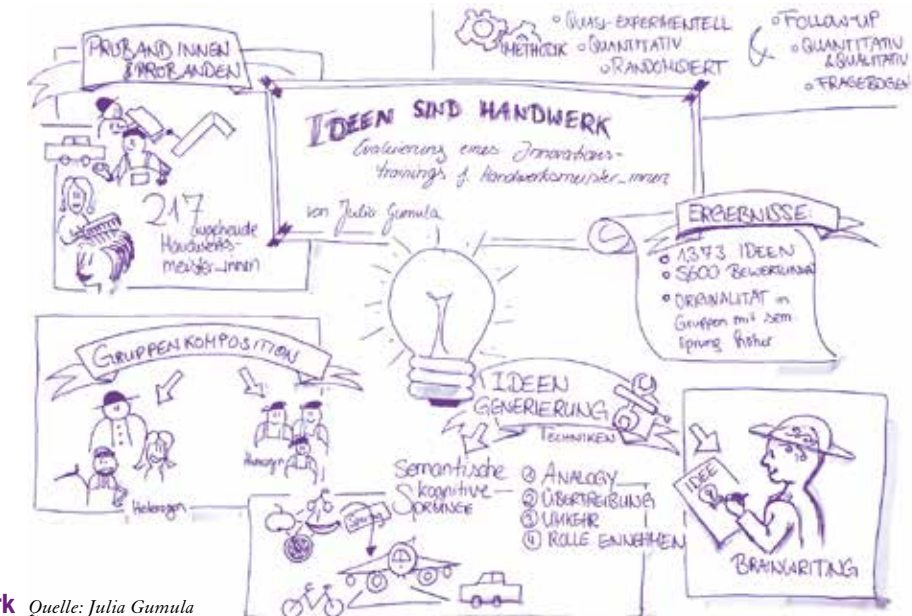 PROBANDINNEN
& PROBANDEN
217
angehende
Handwerks-
meister_innen
METHODIK
o QUASI-EXPERIMENTELL
o QUANTITATIV
o RANDOMISIERT
&
o FOLLOW-UP
o QUANTITATIV
& QUALITATIV
o FRAGEBOGEN
IDEEN SIND HANDWERK
Evaluierung eines Innovations-
trainings f. Handwerksmeister_innen
von Julia Gumula
ERGEBNISSE
1373 IDEEN
5600 BEWERTUNGEN
ORIGINALITÄT in
Gruppen mit sem
Sprung höher
GRUPPENKOMPOSITION
Heterogen
Homogen
IDEEN
GENERIERUNG
TECHNIKEN
Semantische
kognitive
SPRÜNGE
① ANALOGY
② ÜBERTREIBUNG
③ UMKEHR
④ ROLLE EINNEHMEN
Sprung
IDEE
BRAINWRITING
rk Quelle: Julia Gumula